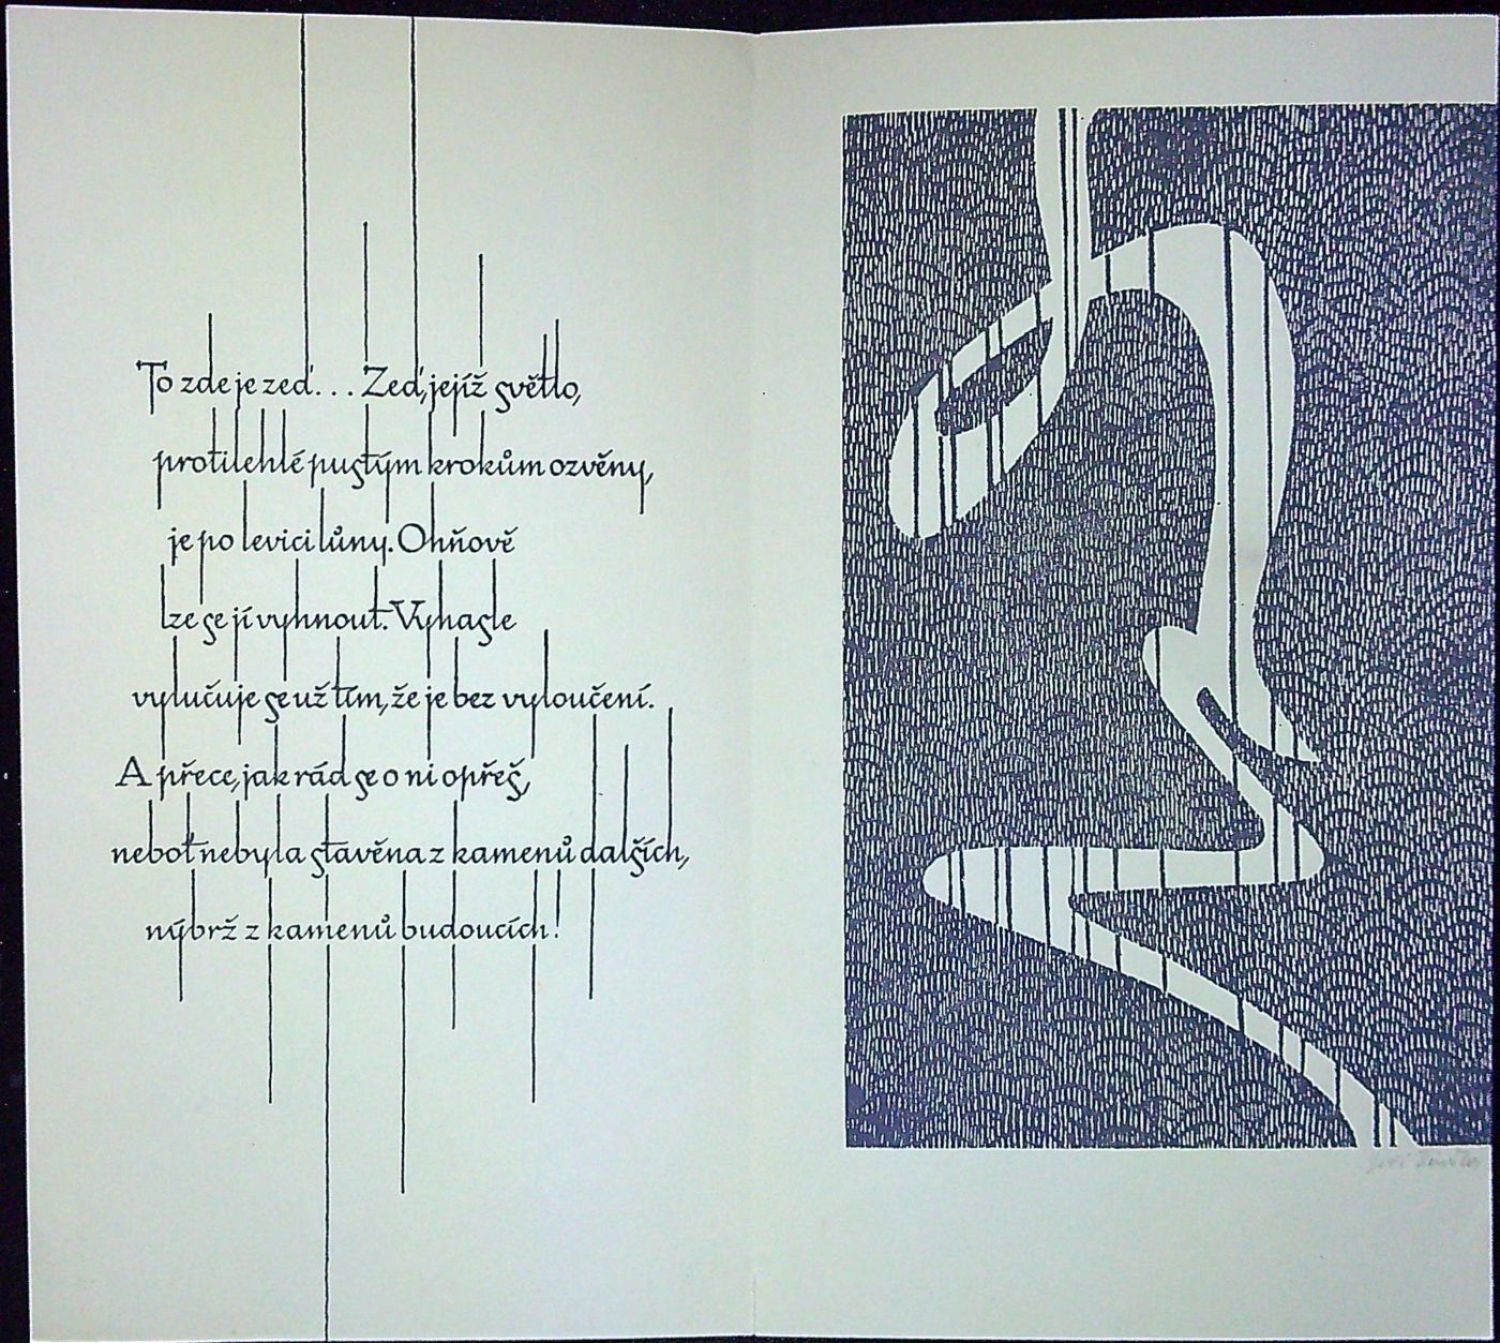 To zde je zeď... Zeď, jejíž světlo,
protilehlé pustým krokům ozvěny,
je po levici lůny. Ohňově
lze se jí vyhnout. Vyhasle
vylučuje se už tím, že je bez vyloučení.
A přece, jak rád se o ni opřeš,
neboť nebyla stavěna z kamenů dalších,
nýbrž z kamenů budoucích!